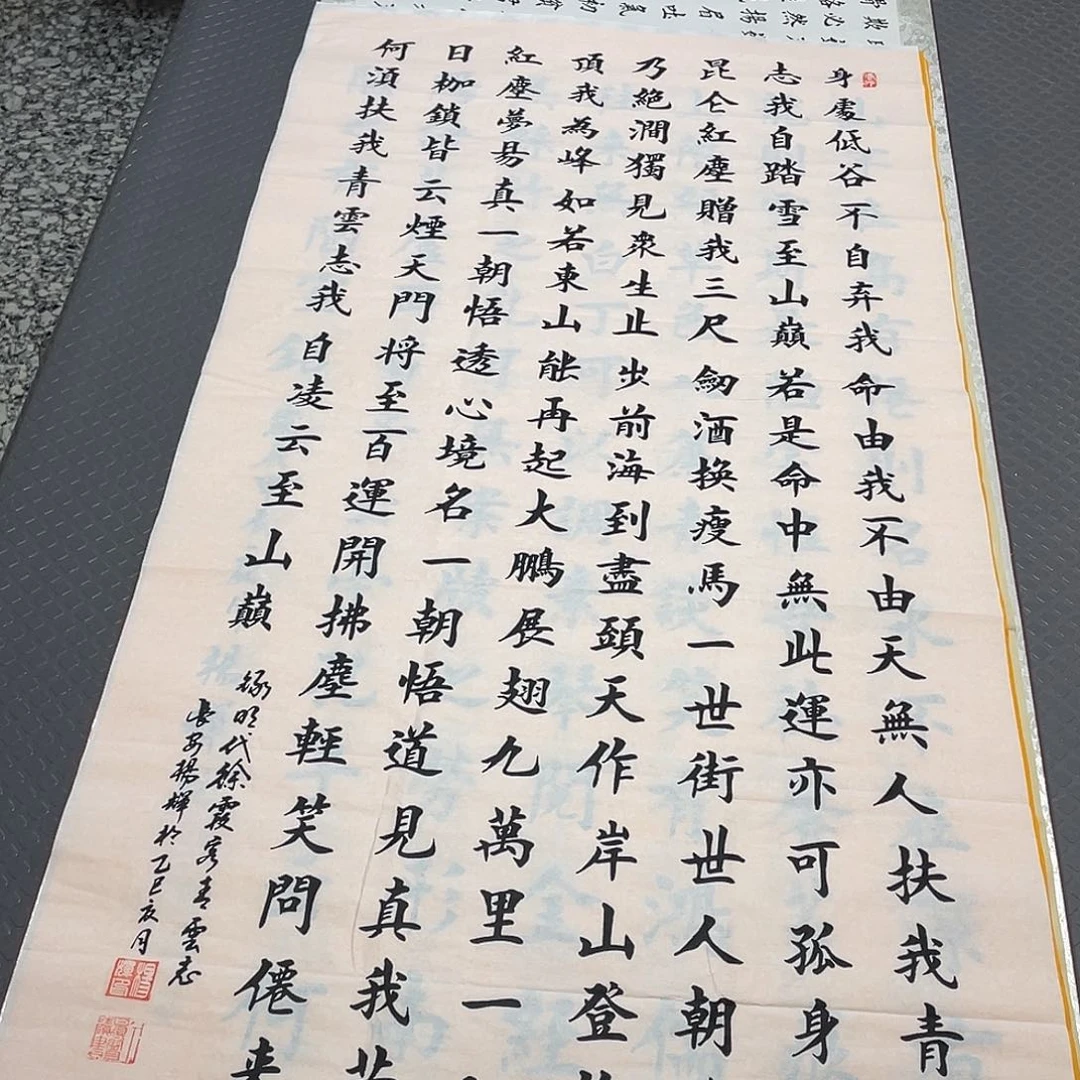 身處低谷不自弃我命由我不由天無人扶我青
志我自踏雪至山巔若是命中無此運亦可孤身
昆仑紅塵贈我三尺劒酒换瘦馬一世街世人朝
乃絕澗獨見衆生止步前海到盡頭天作岸山登
頂我為峰如若東山能再起大鵬展翅九萬里一
紅塵夢易真一朝悟透心境名一朝悟道見真我
日枷鎖皆云煙天門将至百運開拂塵輕笑問僊来
何須扶我青雲志我自凌云至山巔
録明代徐霞客青雲志
長安楊輝於乙巳夏月